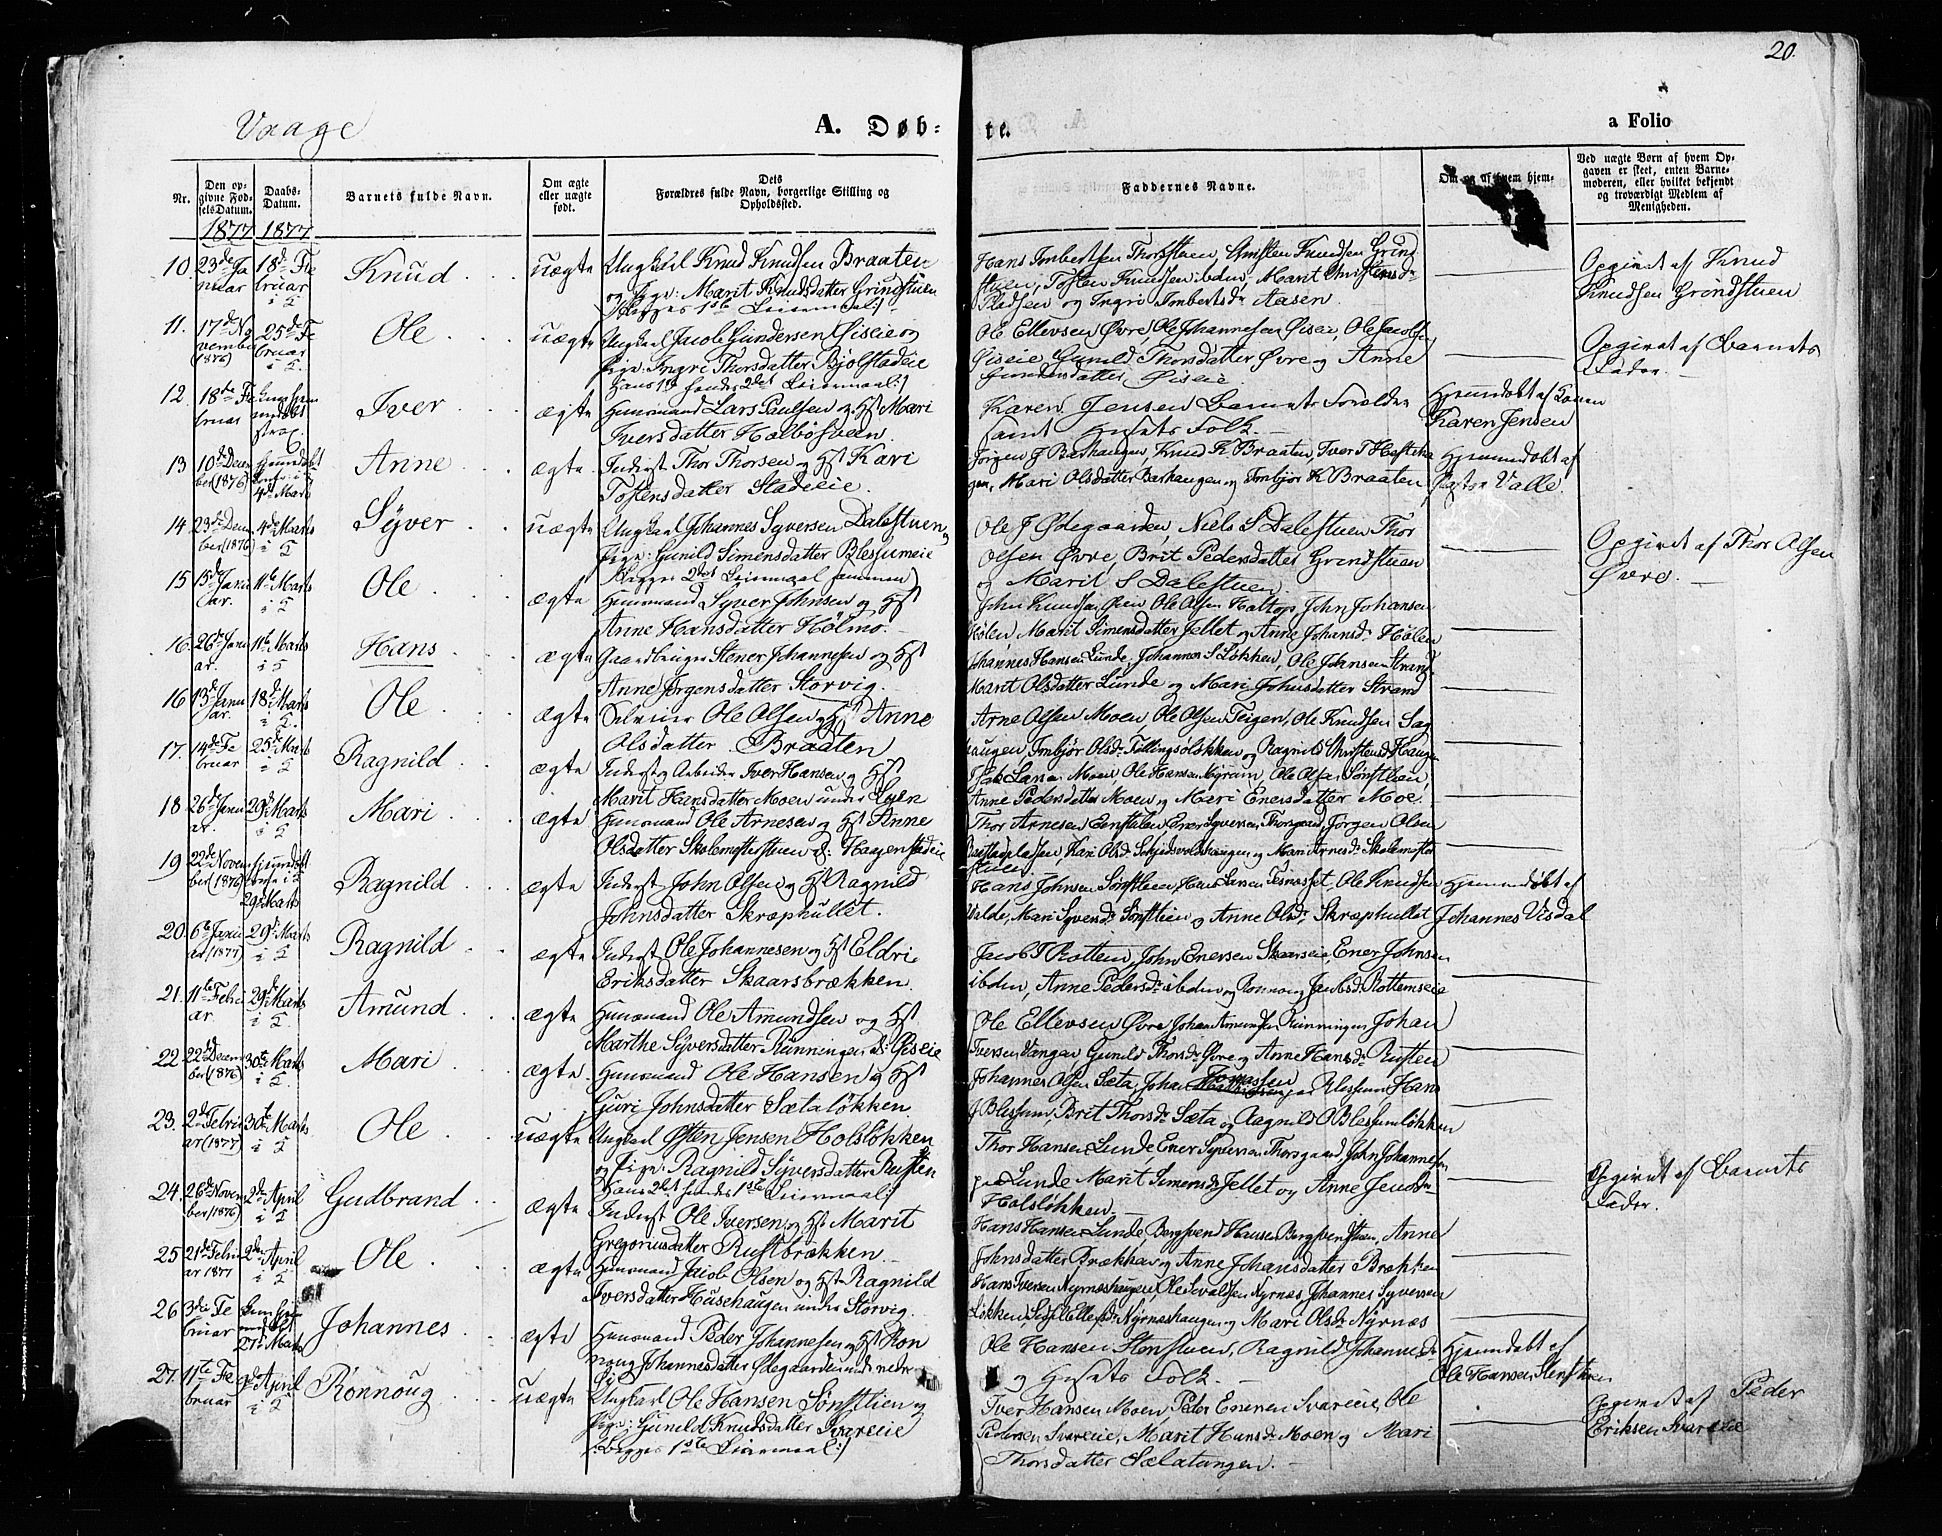 20.
Vaage
A. Døb-
te.
a Folio
Nr.
Den op-
givne Fød-
selsDatum.
Daabs-
Datum.
Barnets fulde Navn.
Om ægte
eller uægte
født.
Dets
Forældres fulde Navn, borgerlige Stilling og
Opholdssted.
Faddernes Navne.
Ved uægte Børn af hvem Op-
gaven er skeet, enten Barne-
moderen, eller hvilket bekjendt
og troværdigt Medlem af
Menigheden.
1877 1877
10 23de Ja
nuar
18de Fe
bruar
Knud
uægte
Ungkarl Knud Knudsen Braaten
og Pige: Marit Knudsdatter Grindstuen
Begges 1ste Leiermaal
Hans Imbertsen Thorsstuen, Christen Knudsen Grind
stuen, Tosten Knudsen ibden, Marit Christensdr
Pladsen og Ingri Imbertsdr Aasen.
Opgivet af Knud
Knudsen Grindstuen
11. 17de No
vember
(1876)
25de Fe
bruar
Ole
uægte
Ungkarl Jacob Gundersen Øiseie og
Pige: Ingri Thorsdatter Bjølstadeie
Hans 1ste hendes 2det Leiermaal
Ole Ellevsen Øvre, Ole Johannesen Øiseie, Ole Jacobs
Øiseie Gunild Thorsdatter Øvre og Anne
Gundersdatter Øiseie
Opgivet af Barnets
Fader.
12. 18de Fe
bruar
Iver
ægte
Huusmand Lars Paulsen og Hst Mari
Iversdatter Holbøsveen
Karen Jensen Barnets Forældre
samt Husets Folk.
Hjemmedøbt af Konen
Karen Jensen
13 10de Decem
ber (1876)
4de Marts
Anne
ægte
Inderst Thor Thorsen og Hst Kari
Tostensdatter Stadeeie
Jørgen J Barhaugen, Knud K Braaten, Iver T Hesteha
gen, Mari Olsdatter Barhaugen og Imbjør K Braaten
Hjemmedøbt af
Pastor Valle.
14 23de Decem
ber (1876)
4de Marts
Syver
uægte
Ungkarl Johannes Syversen Dalestuen
Pige: Gunild Simensdatter Blessumeie
Begges 2det Leiermaal sammen
Ole J Ødegaarden, Niels S Dalestuen Thor
Olsen Øvre, Brit Pedersdatter Grindstuen
og Marit S Dalestuen
Opgivet af Thor Olsen
Øvre.
15 15de Janu
ar.
11te Marts
Ole
ægte
Huusmand Syver Johnsen og Hst
Anne Hansdatter Hølmo.
John Knudsen Øien Ole Olsen Haltop, John Johansen
Hølen, Marit Simensdatter Jellet og Anne Johansdr Hølen
16. 26de Janu
ar.
11te Marts
Hans
ægte
Gaardbruger Stener Johannesen og Hst
Anne Jørgensdatter Storvig.
Johannes Hansen Lunde, Johannes S Løkken, Ole Johnsen Strand
Marit Olsdatter Lunde og Mari Johnsdatter Strand
16 13de Janu
ar.
18de Marts
Ole
ægte
Selveier Ole Olsen og Hst Anne
Olsdatter Braaten
Arne Olsen Moen Ole Olsen Teigen, Ole Knudsen Sag
haugen, Imbjør Olsdr Fillingsløkken og Ragnild Christensd Haugen
17. 14de Fe
bruar
25de Marts
Ragnild
ægte
Inderst og Arbeider Iver Hansen og Hst
Marit Hansdatter Moen under Syen
Isak Larsen Moen Ole Hansen Myrum, Ole Olsen Sønstlien
Anne Pedersdatter Moen og Mari Enersdatter Moe.
18 26de Janu
ar.
29de Marts
Mari
ægte
Huusmand Ole Arnesen og Hst Anne
Olsdatter Skolemesterstuen
Thor Arnesen Eenstulen Ener Syversen Thorsgaard, Jørgen Olsen
19 22de Novem
ber (1876)
29de Marts
Ragnild
ægte
Inderst John Olsen og Hst Ragnild
Johnsdatter Skræphullet.
Hans Johnsen Sønstlien, Hans Larsen Tesnæsset, Ole Knudsen
Valde, Mari Syversdr Sønstlien og Anne Olsdr Skræphullet
Hjemmedøbt af
Johannes Visdal
20. 6te Janu
ar (1877)
29de Marts
Ragnild
ægte
Inderst Ole Johannesen og Hst Eldri
Eriksdatter Skaarsbrækken.
Jacob T Rottem, John Enersen Skaarseie, Ener Johnsen
ibden, Anne Pedersdr ibden og Ronnoug Jacobsdr Rottemseie
21. 11te Febru
ar
29de Marts
Amund
ægte
Huusmand Ole Amundsen og Hst
Marthe Syversdatter Rünningen
Ole Ellevsen Øvre Johan Amundsen Rünningen Johan
Iversen Vangen Gunild Thorsdr Øvre og Anne Hansdr Rusten
22 22de Decem
ber (1876)
30te Marts
Mari
ægte
Huusmand Ole Hansen og Hst
Guri Johnsdatter Sætaløkken
Johannes Olsen Sæta, Johan Tomassen Blessum Hans
J Blessum, Brit Thorsdr Sæta og Ragnild O Blessumløkken
23. 2de Febru
ar (1877)
30te Marts
Ole
uægte
Ungkarl Østen Jensen Holsløkken
og Pige: Ragnild Syversdatter Rusten
Hans 2det hendes 1ste Leiermaal
Thor Hansen Lunde Ener Syversen Thorsgaard, John Johannesen
Lunde Marit Simensdr Jellet og Anne Jensdr
Holsløkken.
Opgivet af Barnets
Fader.
24. 26de Novem
ber (1876)
2den April
Gudbrand
ægte
Inderst Ole Iversen og Hst Marit
Gregoriusdatter Rustbrækken
Hans Hansen Lunde Bergsvend Hansen Bergsvendstuen, Anne
Johnsdatter Brækken og Anne Johansdatter Brækken
25 21de Febru
ar 1877
2den April
Ole
ægte
Huusmand Jacob Olsen og Hst Ragnild
Iversdatter Husehaugen under Storvig.
Hans Iversen Nyrneshaugen Ole Sevaldsen Nyrnes Johannes Syversen
Løkken, Sidsel Ellefsdr Nyrneshaugen og Mari Olsdr Nyrnæs
26 3die Fe
bruar
27de Marts
Johannes
ægte
Huusmand Peder Johannesen og Hst Ron
noug Johannesdatter Ødegaarden under nedre
Ole Hansen Stenstuen, Ragnild Johannesdr
og Husets Folk.
Hjemmedøbt af
Ole Hansen Stenstuen
27. 11te Fe
bruar
2den April
Rønnoug
uægte
Ungkarl Ole Hansen Sønstlien og
Pige: Gunild Knudsdatter Svareeie
Begges 1ste Leiermaal
Iver Hansen Moen, Peder Enersen Svareeie, Ole
Pedersen Svareeie, Marit Hansdr Moen og Mari
Thorsdatter Sælatungen.
Opgivet af Peder
Eriksen Svareeie